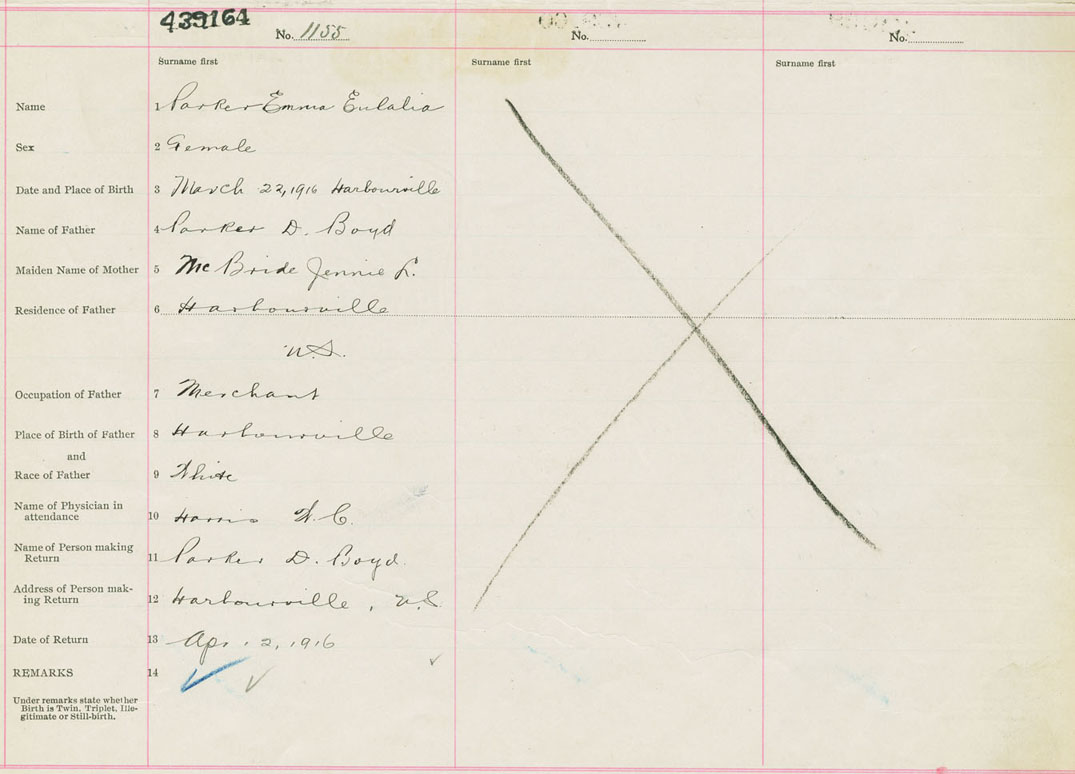 439164
No. 1155 No. No.
Surname first Surname first Surname first
Name 1 Parker Emma Eulalia
Sex 2 Female
Date and Place of Birth 3 March 22, 1916 Harbourville
Name of Father 4 Parker D. Boyd
Maiden Name of Mother 5 McBride Jennie L.
Residence of Father 6 Harbourville
N.S.
Occupation of Father 7 Merchant
Place of Birth of Father 8 Harbourville
and
Race of Father 9 White
Name of Physician in
attendance 10 Harris W. C.
Name of Person making
Return 11 Parker D. Boyd.
Address of Person mak-
ing Return 12 Harbourville, N.S.
Date of Return 13 Apr. 2, 1916
REMARKS 14
Under remarks state whether
Birth is Twin, Triplet, Ille-
gitimate or Still-birth.